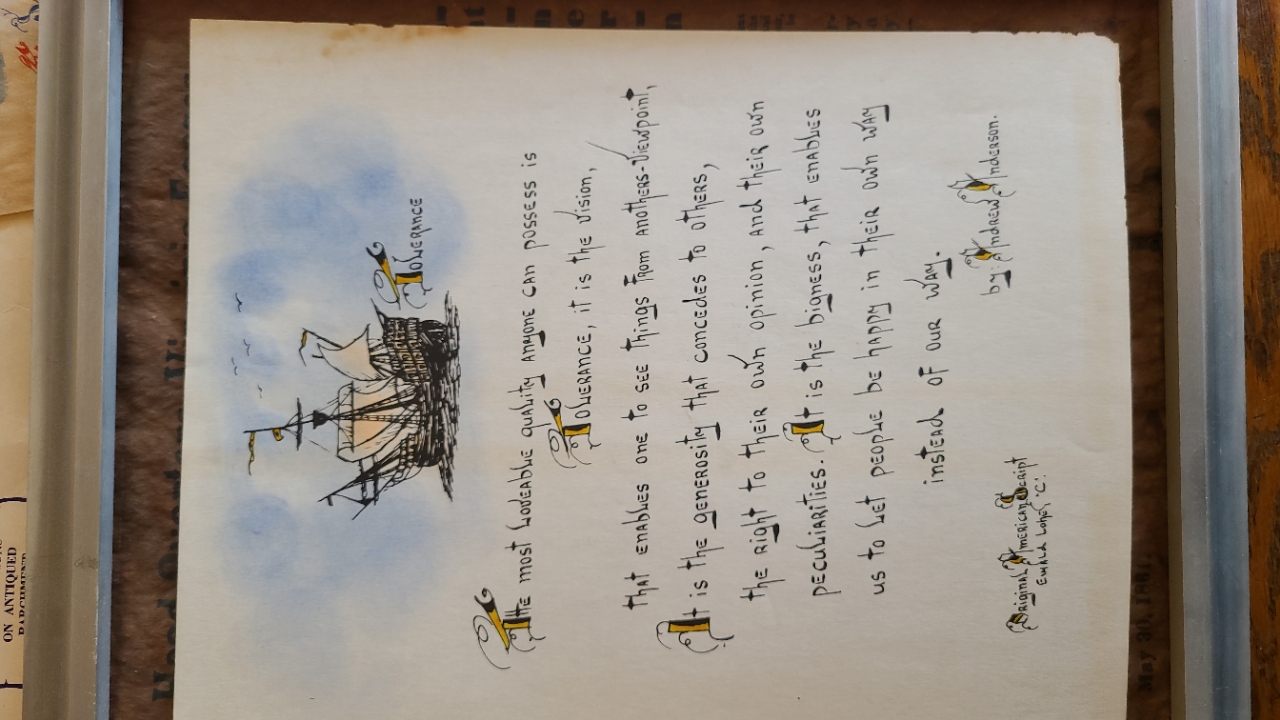 Tolerance
The most loveable quality anyone can possess is
Tolerance, it is the vision,
that enables one to see things from anothers-viewpoint,
It is the generosity that concedes to others,
the right to their own opinion, and their own
peculiarities. It is the bigness, that enables
us to let people be happy in their own way
instead of our way.
by: Andrew Anderson.
Original American Script
ON ANTIQUED
PARCHMENT
May 20, 1881.